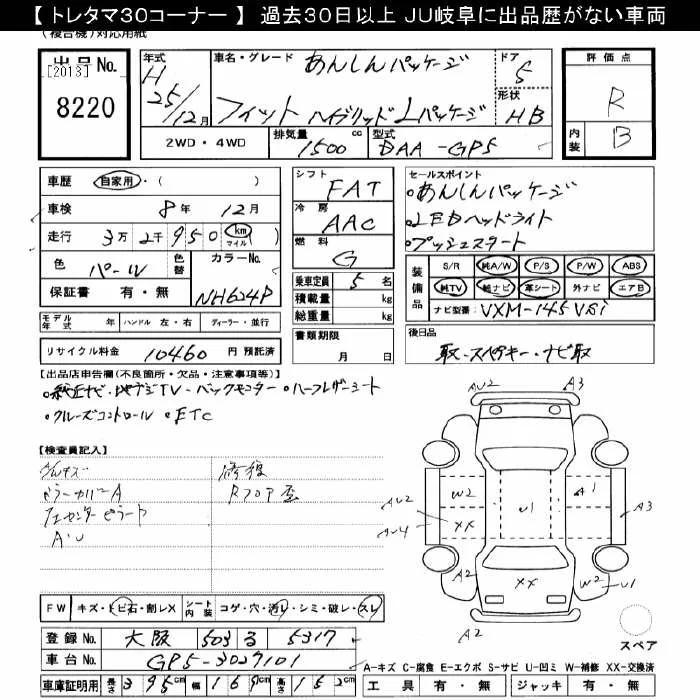 【 トレタマ30コーナー 】 過去30日以上 JU岐阜に出品歴がない車両
(複合機)対応用紙
出品No.
[2013]
8220
年式
H
25/12月
車名・グレード
あんしんパッケージ
フィット ハイブリッド Lパッケージ
ドア
5
形状
HB
評価点
R
内装
B
2WD・4WD
排気量
1500 cc
型式
DAA-GP5
車歴 自家用・( )
車検 8年 12月
走行 3万 2千 950 km マイル ( )
色 パール 色替 カラーNo. NH624P
保証書 有・無
シフト
FAT
冷房
AAC
燃料
G
乗車定員 5 名
積載量 kg
総重量 kg
セールスポイント
・あんしんパッケージ
・LEDヘッドライト
・プッシュスタート
装備品
S/R 純A/W P/S P/W ABS
純TV 純ナビ 革シート 外ナビ エアB
ナビ型番: VXM-145VSi
モデル年式 年 ハンドル 左・右 ディーラー・並行
リサイクル料金 10460 円 預託済
書類期限
月 日
後日品
取・スペアキー・ナビ取
【出品店申告欄(不良箇所・欠品・注意事項等)】
・純正ナビ・地デジTV・バックモニター ・ハーフレザーシート
・クルーズコントロール ・ETC
【検査員記入】
修復
Rフロア歪
A・U
AU2
A3
W2
A1
U1
XX
AU2
AU4
A3
A2
XX
W2
U1
A2
スペア
FW キズ・トビ石・割レX シート内装 コゲ・穴・汚レ・シミ・破レ・スレ
登録No. 大阪 503 る 5317
車台No. GP5-3027101
車庫証明用 長さ 395cm 幅 169cm 高さ 152cm
A-キズ C-腐食 E-エクボ S-サビ U-凹ミ W-補修 XX-交換済
工具 有・無 ジャッキ 有・無